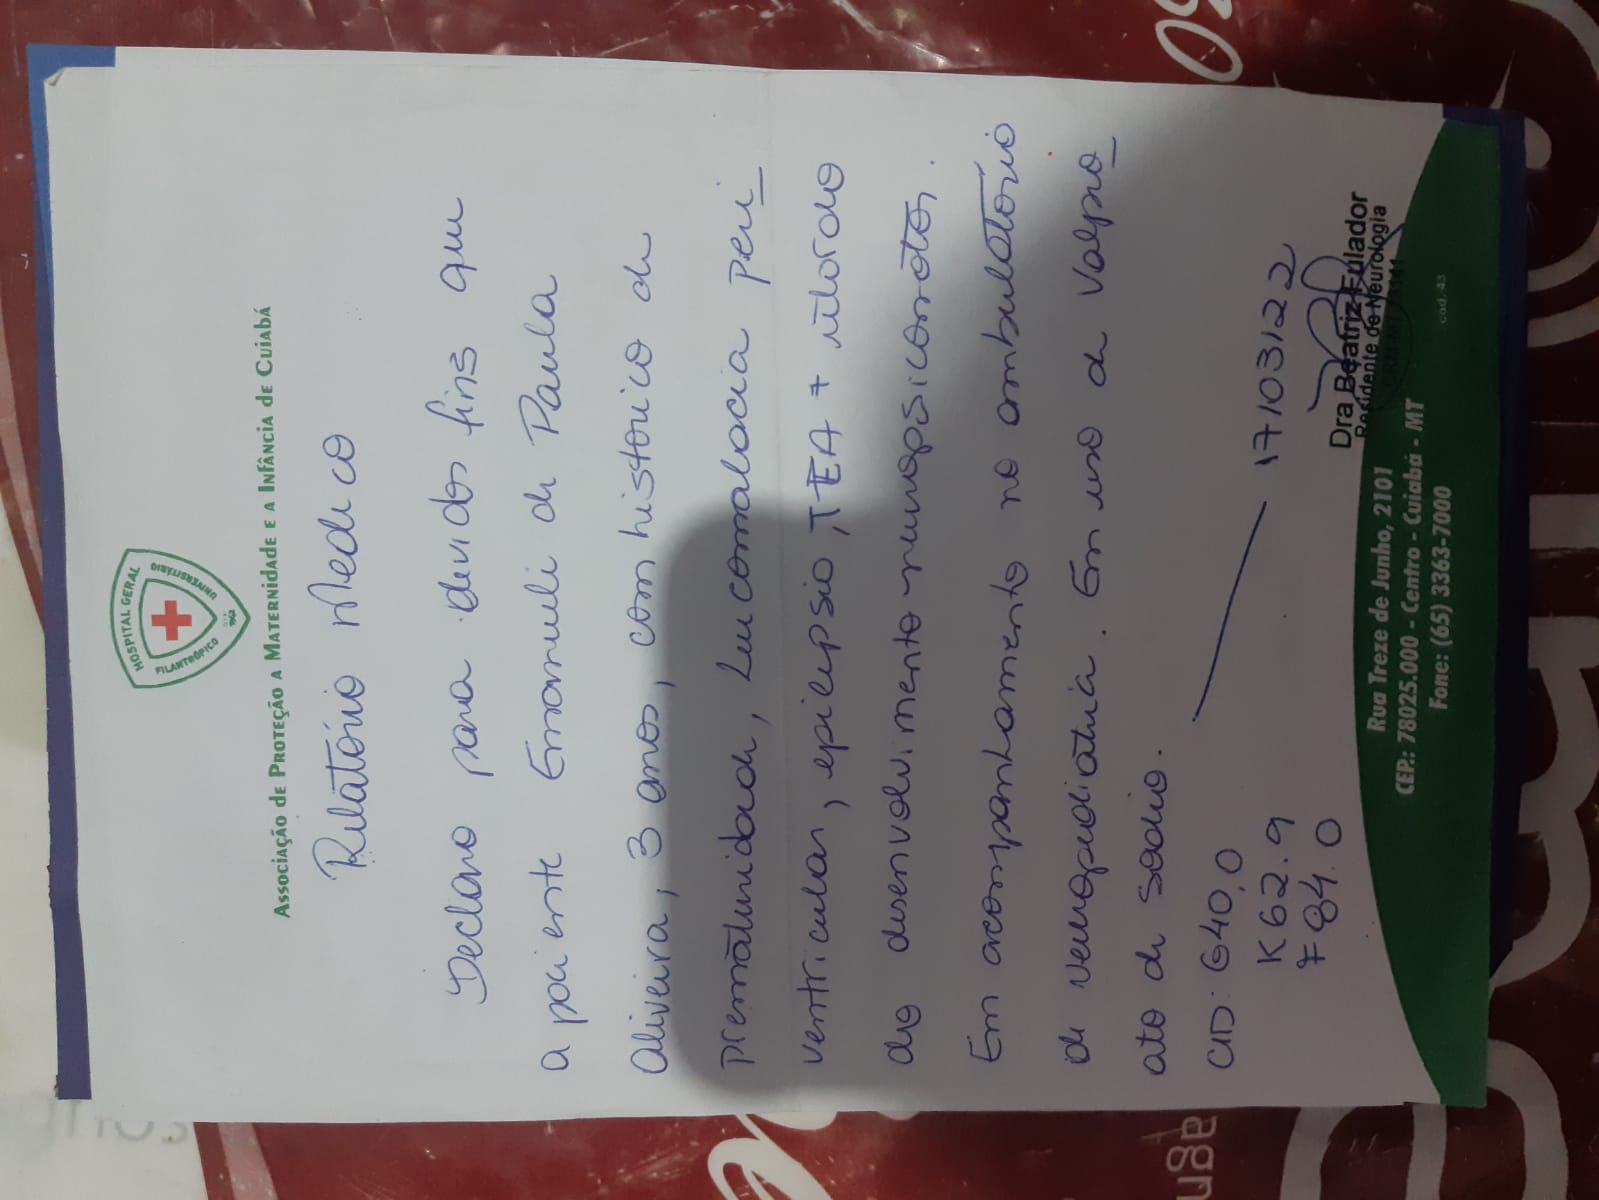 HOSPITAL GERAL
FILANTRÓPICO
UNIVERSITÁRIO
ASSOCIAÇÃO DE PROTEÇÃO A MATERNIDADE E A INFÂNCIA DE CUIABÁ
Relatório Médico
Declaro para devidos fins que
a paciente Emanueli de Paula
Oliveira, 3 anos, com histórico de
prematuridade, Leucomalacia peri
ventricular, epilepsia, TEA + retardo
do desenvolvimento neuropsicomotor.
Em acompanhamento no ambulatório
de neuropediatria. Em uso de valpro
ato de sódio.
CID: G40,0
K62.9
F84.0
17/03/22
Dra Beatriz Fulador
Residente de Neurologia
Rua Treze de Junho, 2101
CEP.: 78025.000 - Centro - Cuiabá - MT
Fone: (65) 3363-7000
cod. 43